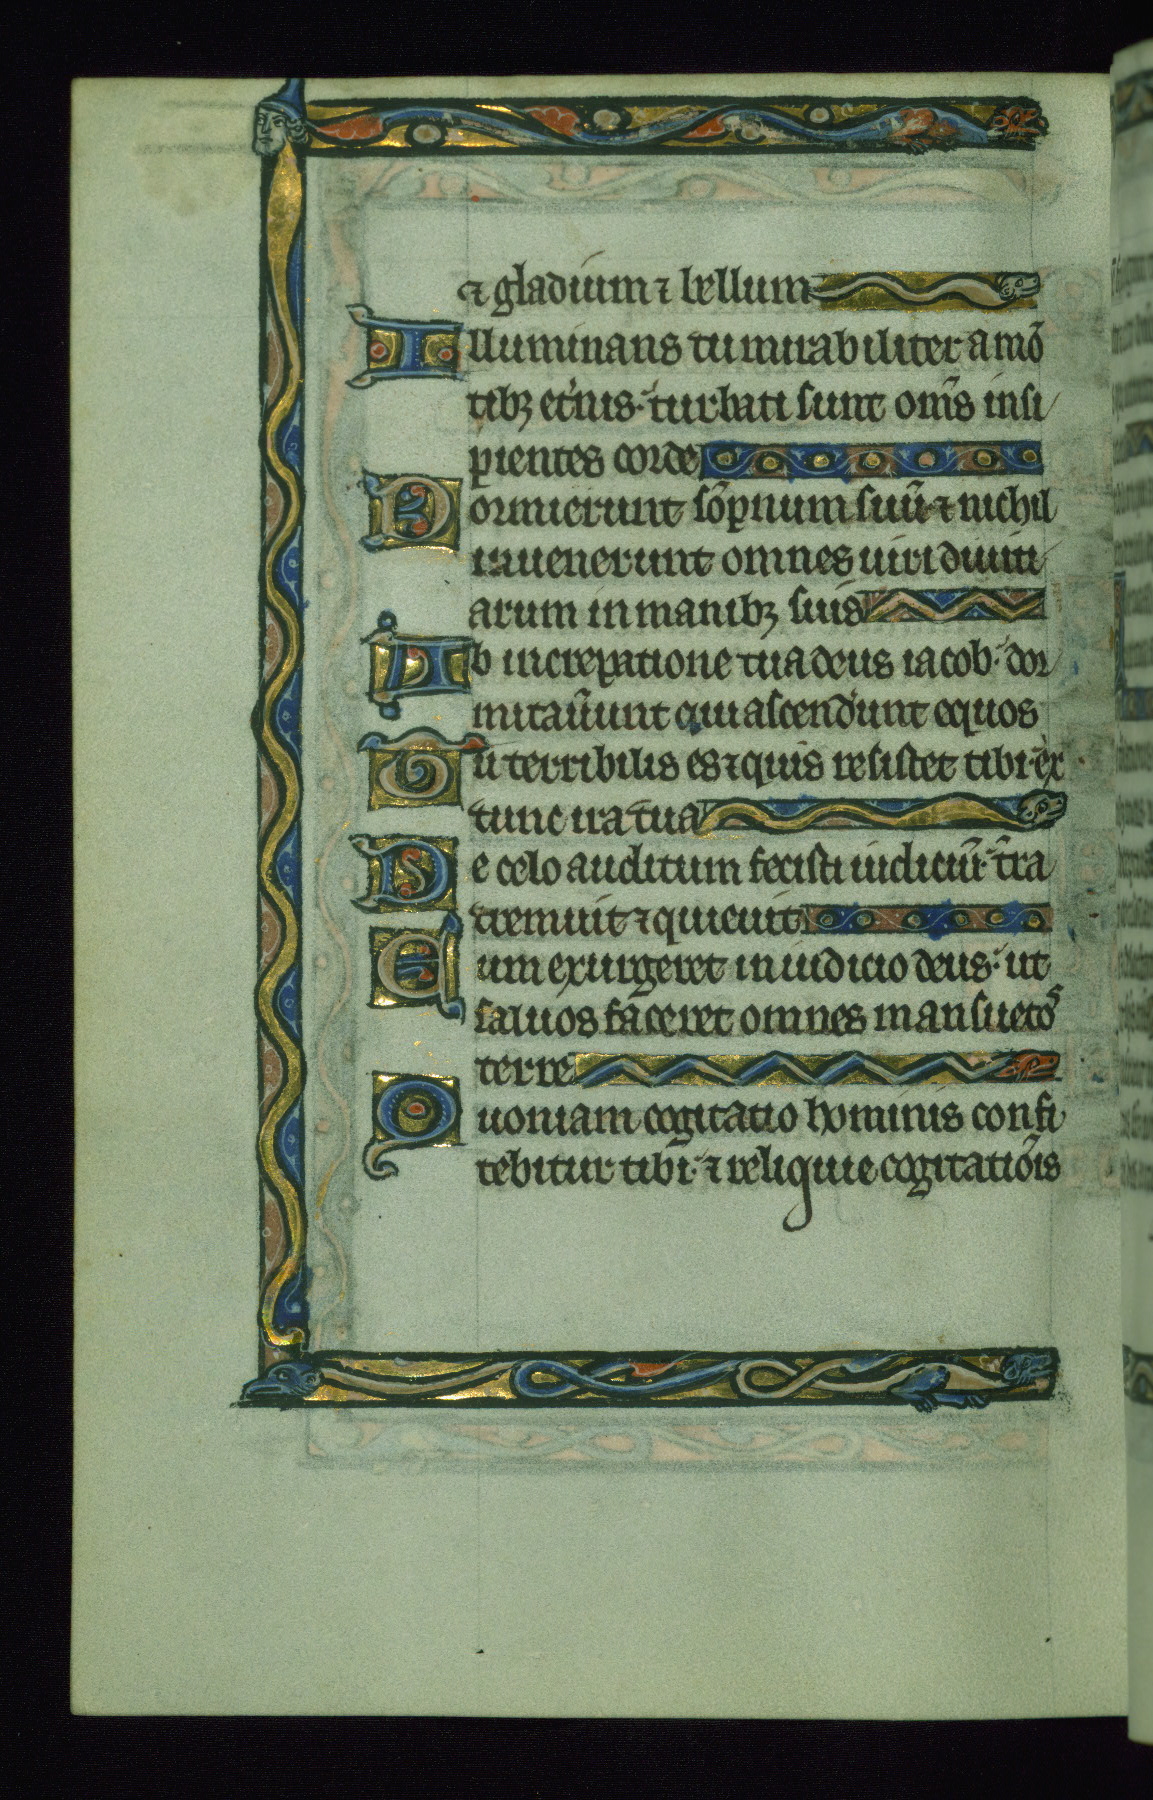 ⁊ gladium ⁊ bellum
Illuminans tu mirabiliter a mō
tibꝫ et̾nis. turbati sunt om̄s insi
pientes corde
Dormierunt sōpnum suū ⁊ nichil
inuenerunt omnes uiri diuiti
arum in manibꝫ suis
Ab increpatione tua deus iacob. dor
mitau̾unt qui ascend̾unt equos
Tu terribilis es ⁊ quis resistet tibi. ex
tunc ira tua
De celo auditum fecisti iudiciū. t̄ra
tremuit ⁊ quieuit
Cum exurgeret in iudicio deus. ut
saluos faceret omnes mansuetos
terre
Quoniam cogitatio hominis confi
tebitur tibi. ⁊ reliquie cogitatiōis